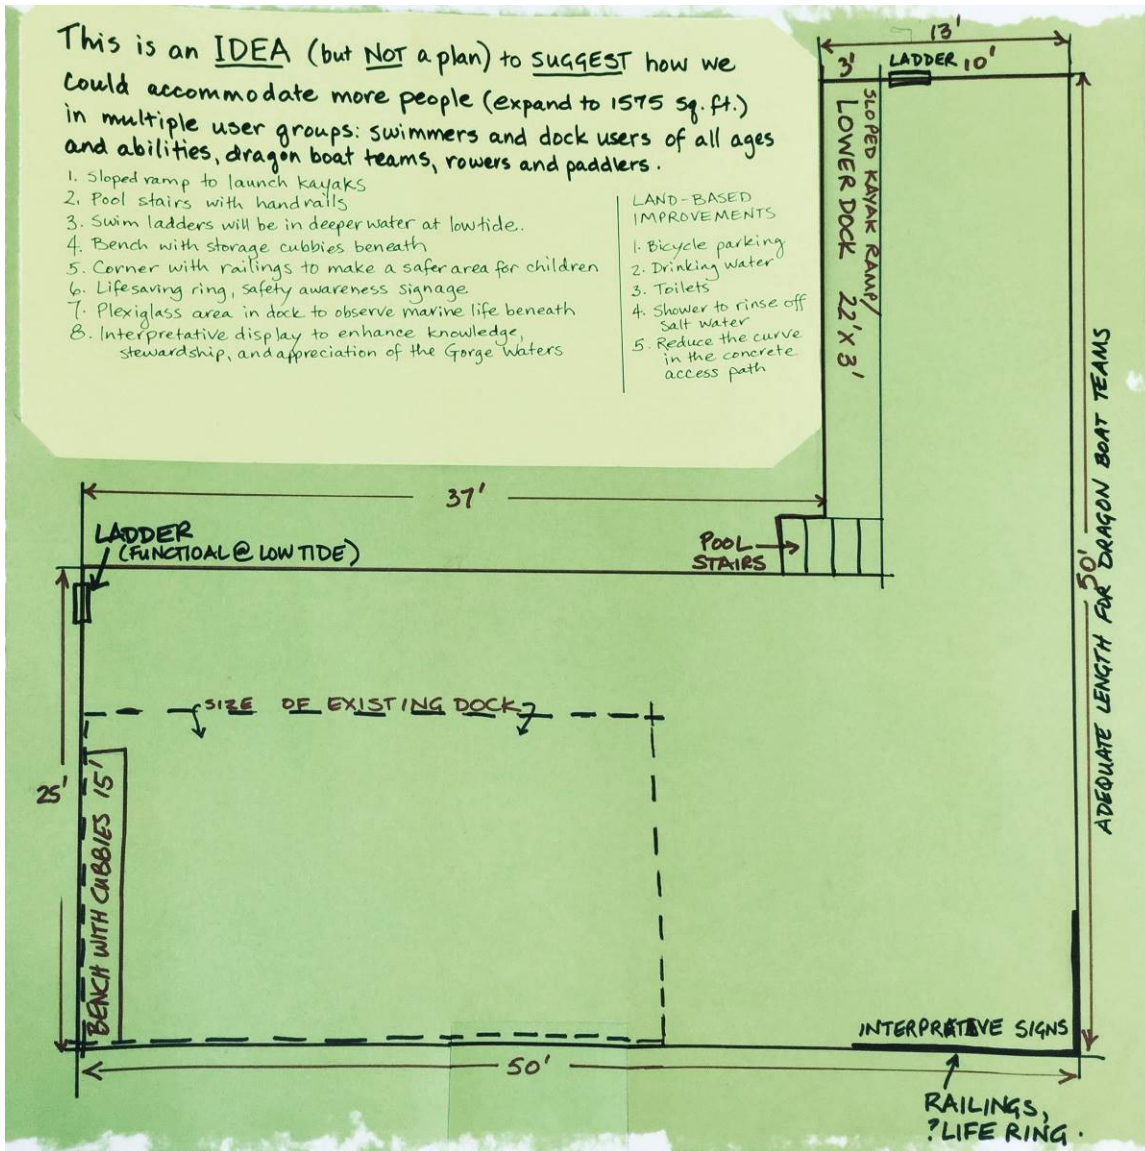 This is an IDEA (but NOT a plan) to SUGGEST how we
could accommodate more people (expand to 1575 sq.ft.)
in multiple user groups: swimmers and dock users of all ages
and abilities, dragon boat teams, rowers and paddlers.
1. Sloped ramp to launch kayaks
2. Pool stairs with handrails
3. Swim ladders will be in deeper water at low tide.
4. Bench with storage cubbies beneath
5. Corner with railings to make a safer area for children
6. Lifesaving ring, safety awareness signage
7. Plexiglass area in dock to observe marine life beneath
8. Interpretative display to enhance knowledge,
stewardship, and appreciation of the Gorge Waters
LAND-BASED
IMPROVEMENTS
1. Bicycle parking
2. Drinking water
3. Toilets
4. Shower to rinse off
salt water
5. Reduce the curve
in the concrete
access path
13'
3'
LADDER 10'
SLOPED KAYAK RAMP/
LOWER DOCK 22' X 3'
50'
ADEQUATE LENGTH FOR DRAGON BOAT TEAMS
37'
LADDER
(FUNCTIOAL @ LOW TIDE)
POOL
STAIRS
SIZE OF EXISTING DOCK
25'
BENCH WITH CUBBIES 15'
INTERPRETIVE SIGNS
50'
RAILINGS,
?LIFE RING.